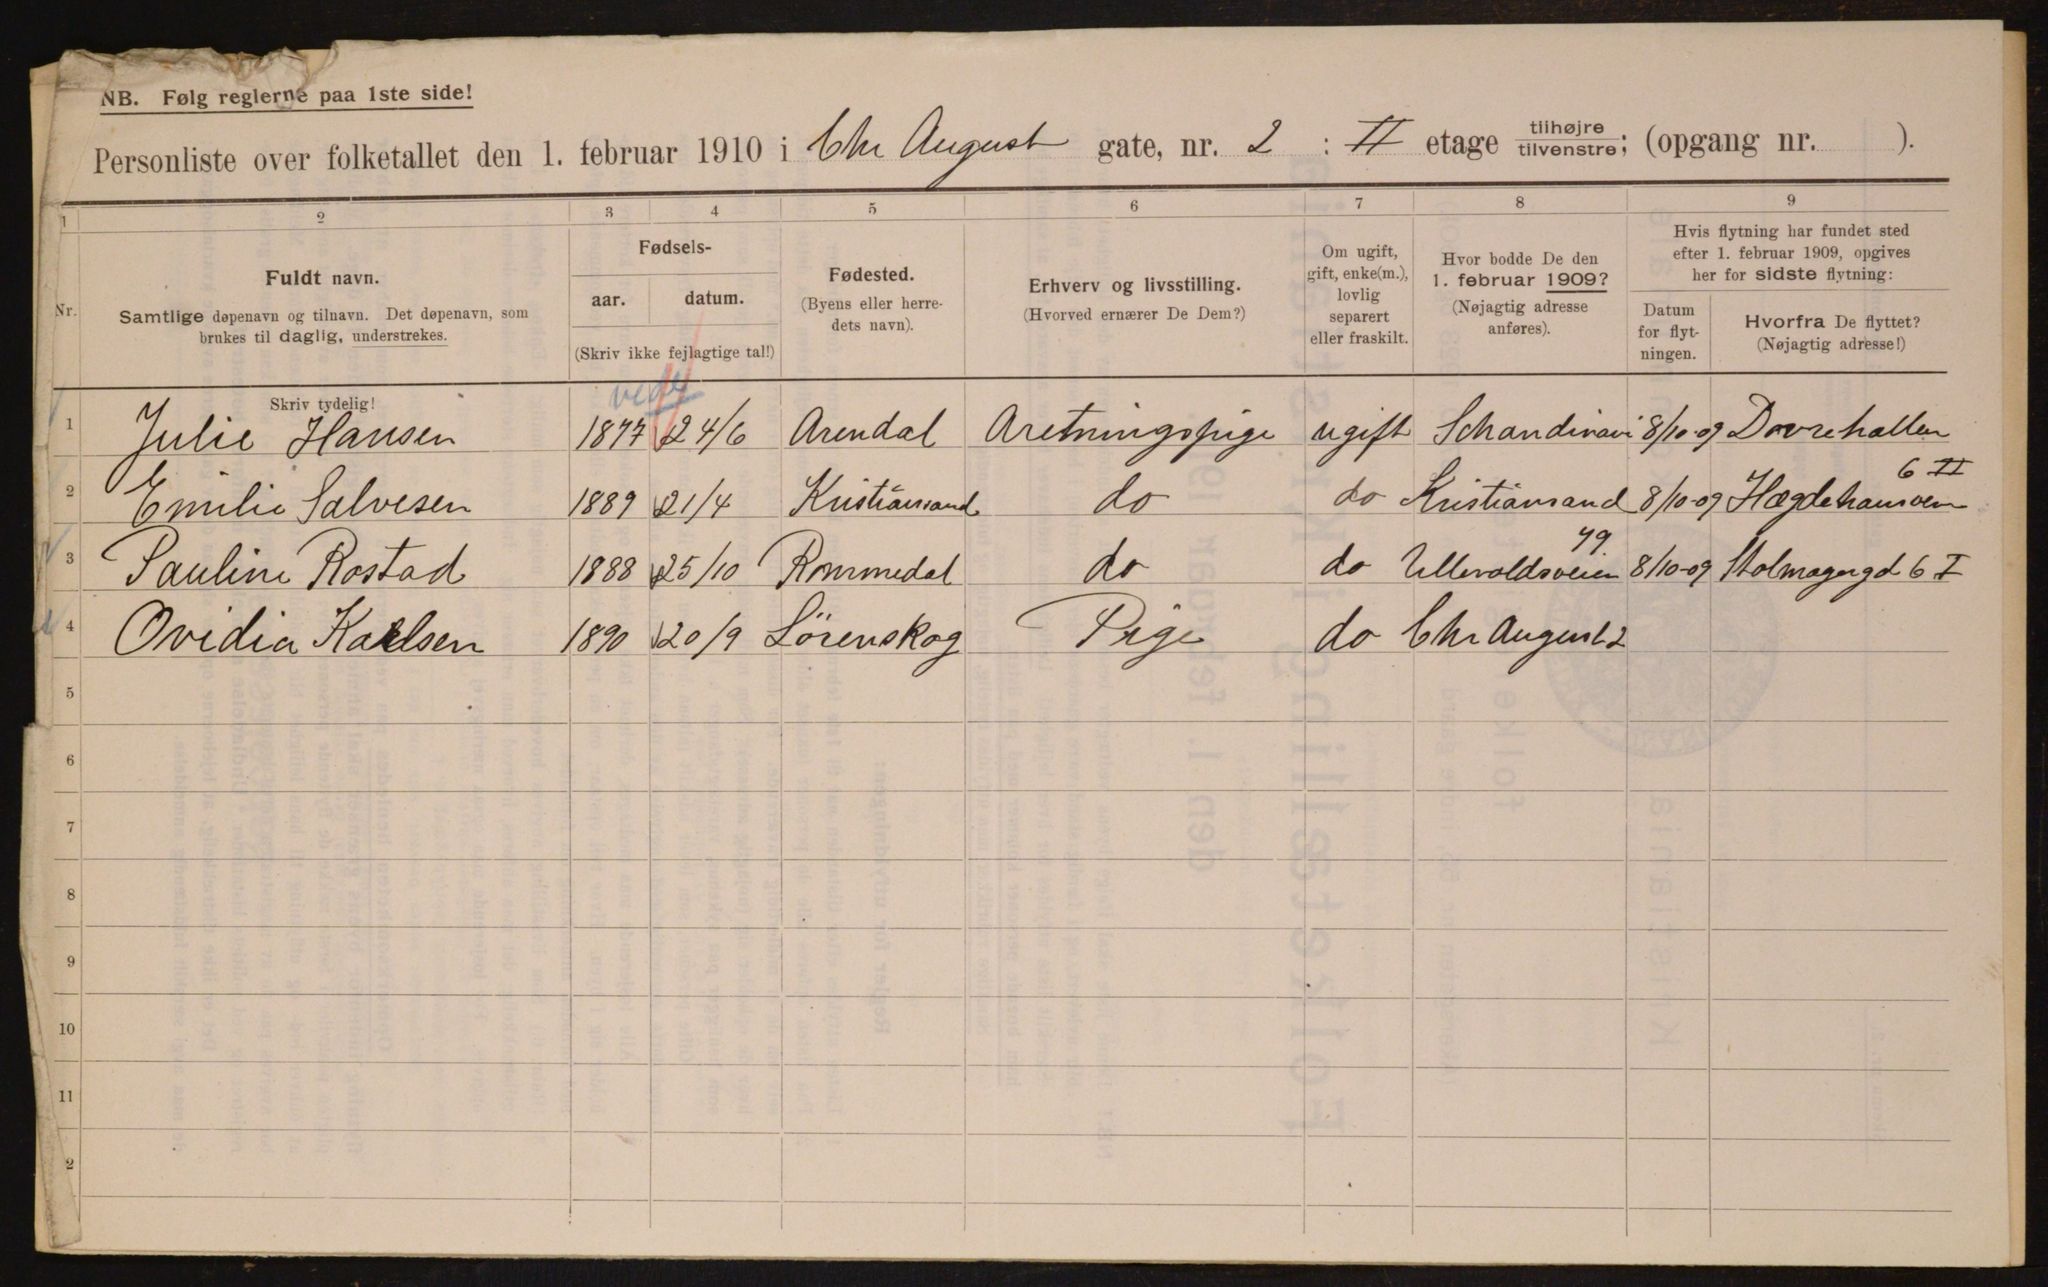 NB. Følg reglerne paa 1ste side!
Personliste over folketallet den 1. februar 1910 i Chr August gate, nr. 2 : II etage tilhøjre tilvenstre; (opgang nr. ).
1 2 3 4 5 6 7 8 9
Nr.
Fuldt navn.
Samtlige døpenavn og tilnavn. Det døpenavn, som
brukes til daglig, understrekes.
Skriv tydelig!
Fødsels-
aar. datum.
(Skriv ikke fejlagtige tal!)
Fødested.
(Byens eller herre-
dets navn).
Erhverv og livsstilling.
(Hvorved ernærer De Dem?)
Om ugift,
gift, enke(m.),
lovlig
separert
eller fraskilt.
Hvor bodde De den
1. februar 1909?
(Nøjagtig adresse
anføres).
Hvis flytning har fundet sted
efter 1. februar 1909, opgives
her for sidste flytning:
Datum
for flyt-
ningen.
Hvorfra De flyttet?
(Nøjagtig adresse!)
1 Julie Hansen 1877 24/6 Arendal Aretningspige ugift Schandinavi 8/10-09 Dovrehallen
2 Emilie Salvesen 1889 21/4 Kristiansand do do Kristiansand 8/10-09 Hægdehausvein 6 II
3 Pauline Rostad 1888 25/10 Rommedal do do Ullevoldsveien 49. 8/10-09 Stolmagergd 6 I
4 Ovidia Karlsen 1890 20/9 Lörenskog Pige do Chr August 2
5
6
7
8
9
10
11
2